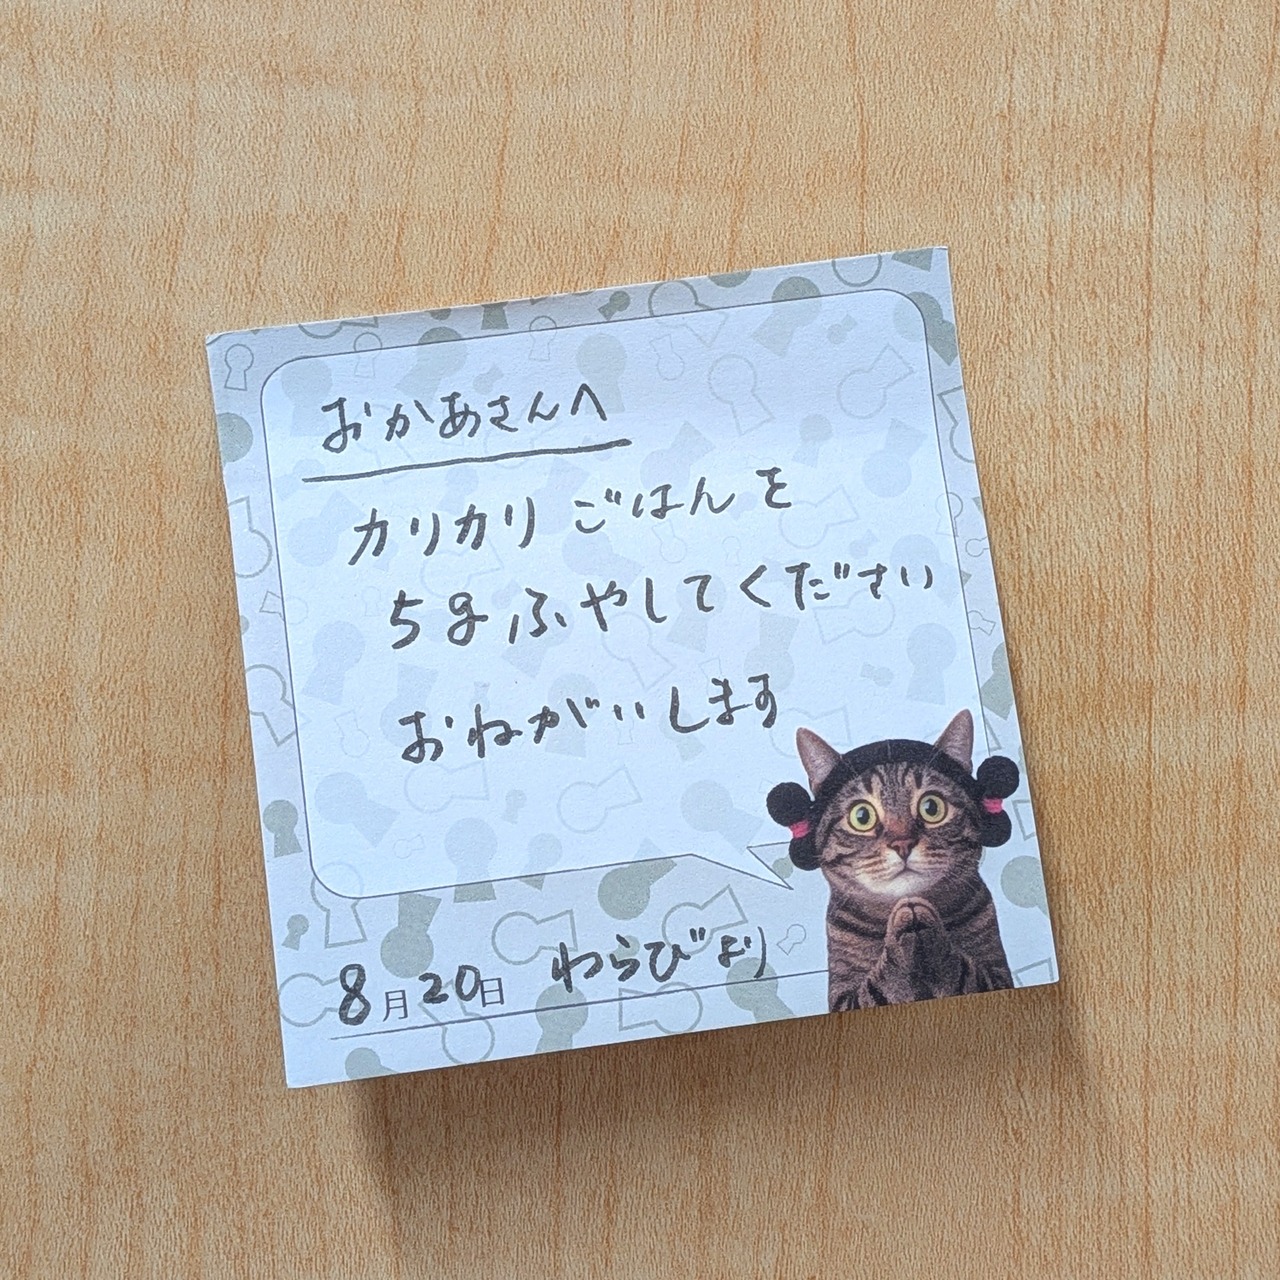 おかあさんへ
カリカリ ごはん を
5g ふやしてください
おねがいします
8月20日 わらびより